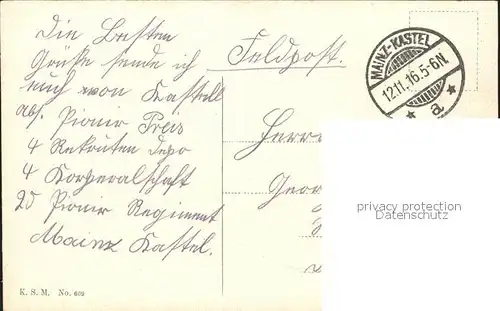 Die Besten
Grüße sende ich
euch von Kastell
abs. Pionir Preis
4 Rekruten Depo
4 Korperalschaft
25 Pionir Regiment
Mainz Kastel.
K. S. M. No. 609
Feldpost.
MAINZ-KASTEL
12.11.16.5-6N.
* a *
Herrn
Geor
privacy protection
Datenschutz